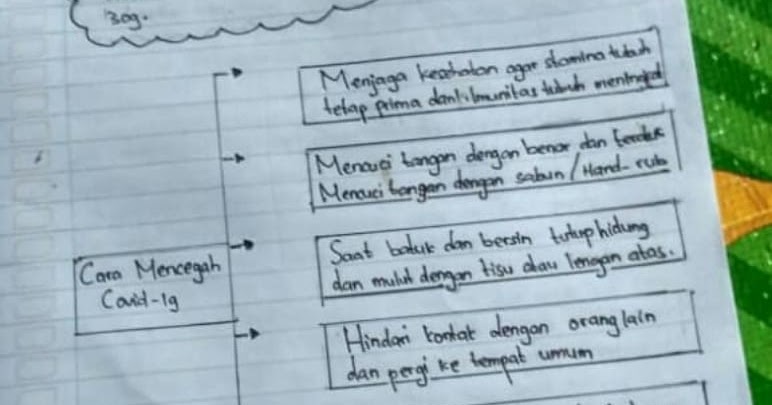 Menjaga kesehatan agar stamina tubuh
tetap prima dan imunitas tubuh meningkat
Mencuci tangan dengan benar dan
Mencuci tangan dengan sabun / Hand-rub
Saat batuk dan bersin tutup hidung
dan mulut dengan tisu atau lengan atas.
Cara Mencegah
Covid-19
Hindari kontak dengan orang lain
dan pergi ke tempat umum